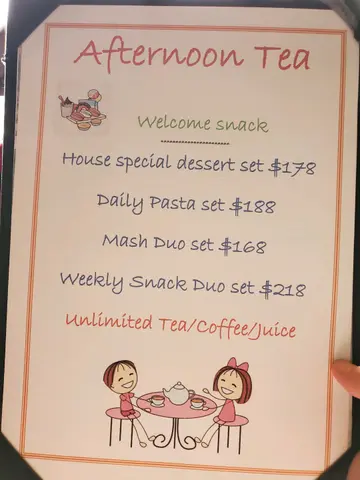 Afternoon Tea
Welcome snack
House special dessert set $178
Daily Pasta set $188
Mash Duo set $168
Weekly Snack Duo set $218
Unlimited Tea/Coffee/Juice